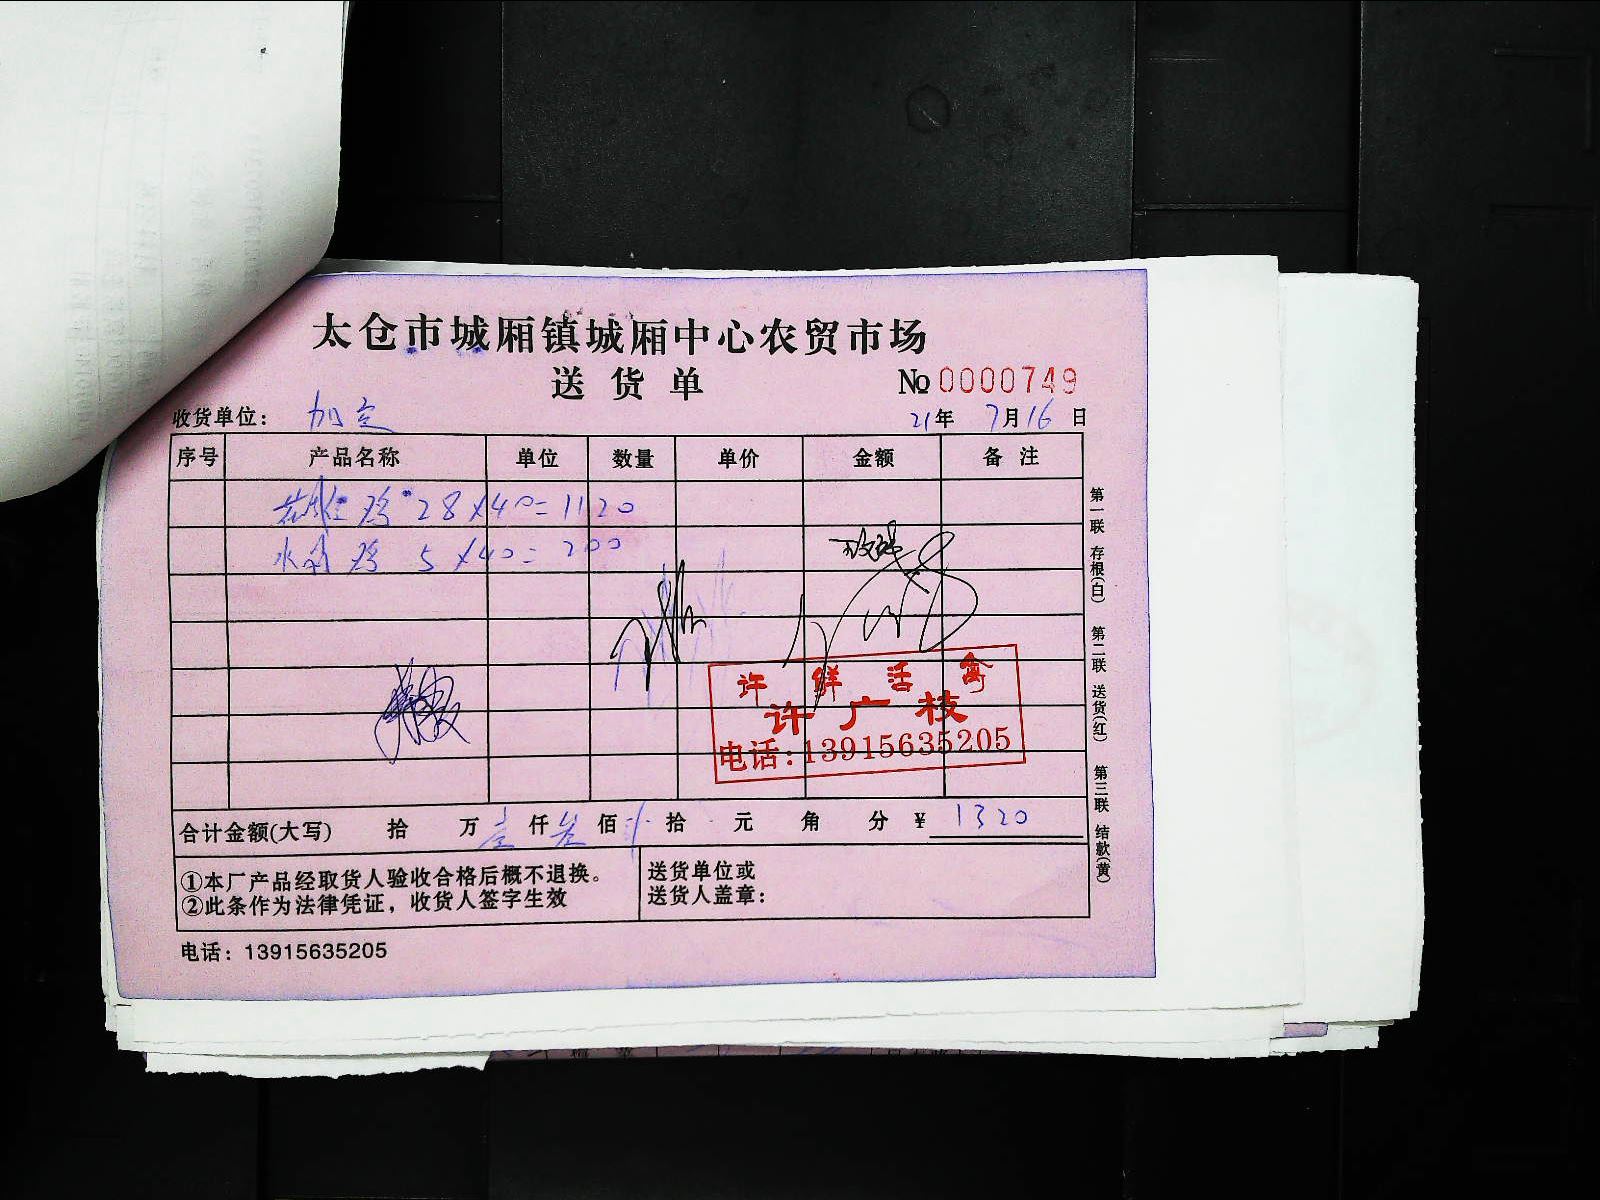 太仓市城厢镇城厢中心农贸市场
送货单 № 0000749
收货单位： 加定 21年 7月16日
序号 产品名称 单位 数量 单价 金额 备注
鸡 28×40=1120
水 鸡 5×40=200
许 鲜 活 禽
许广枝
电话:13915635205
合计金额(大写) 拾 万 壹仟叁佰 拾 元 角 分 ¥ 1320
①本厂产品经取货人验收合格后概不退换。
②此条作为法律凭证，收货人签字生效
送货单位或
送货人盖章：
电话：13915635205
第一联 存根(白) 第二联 送货(红) 第三联 结款(黄)